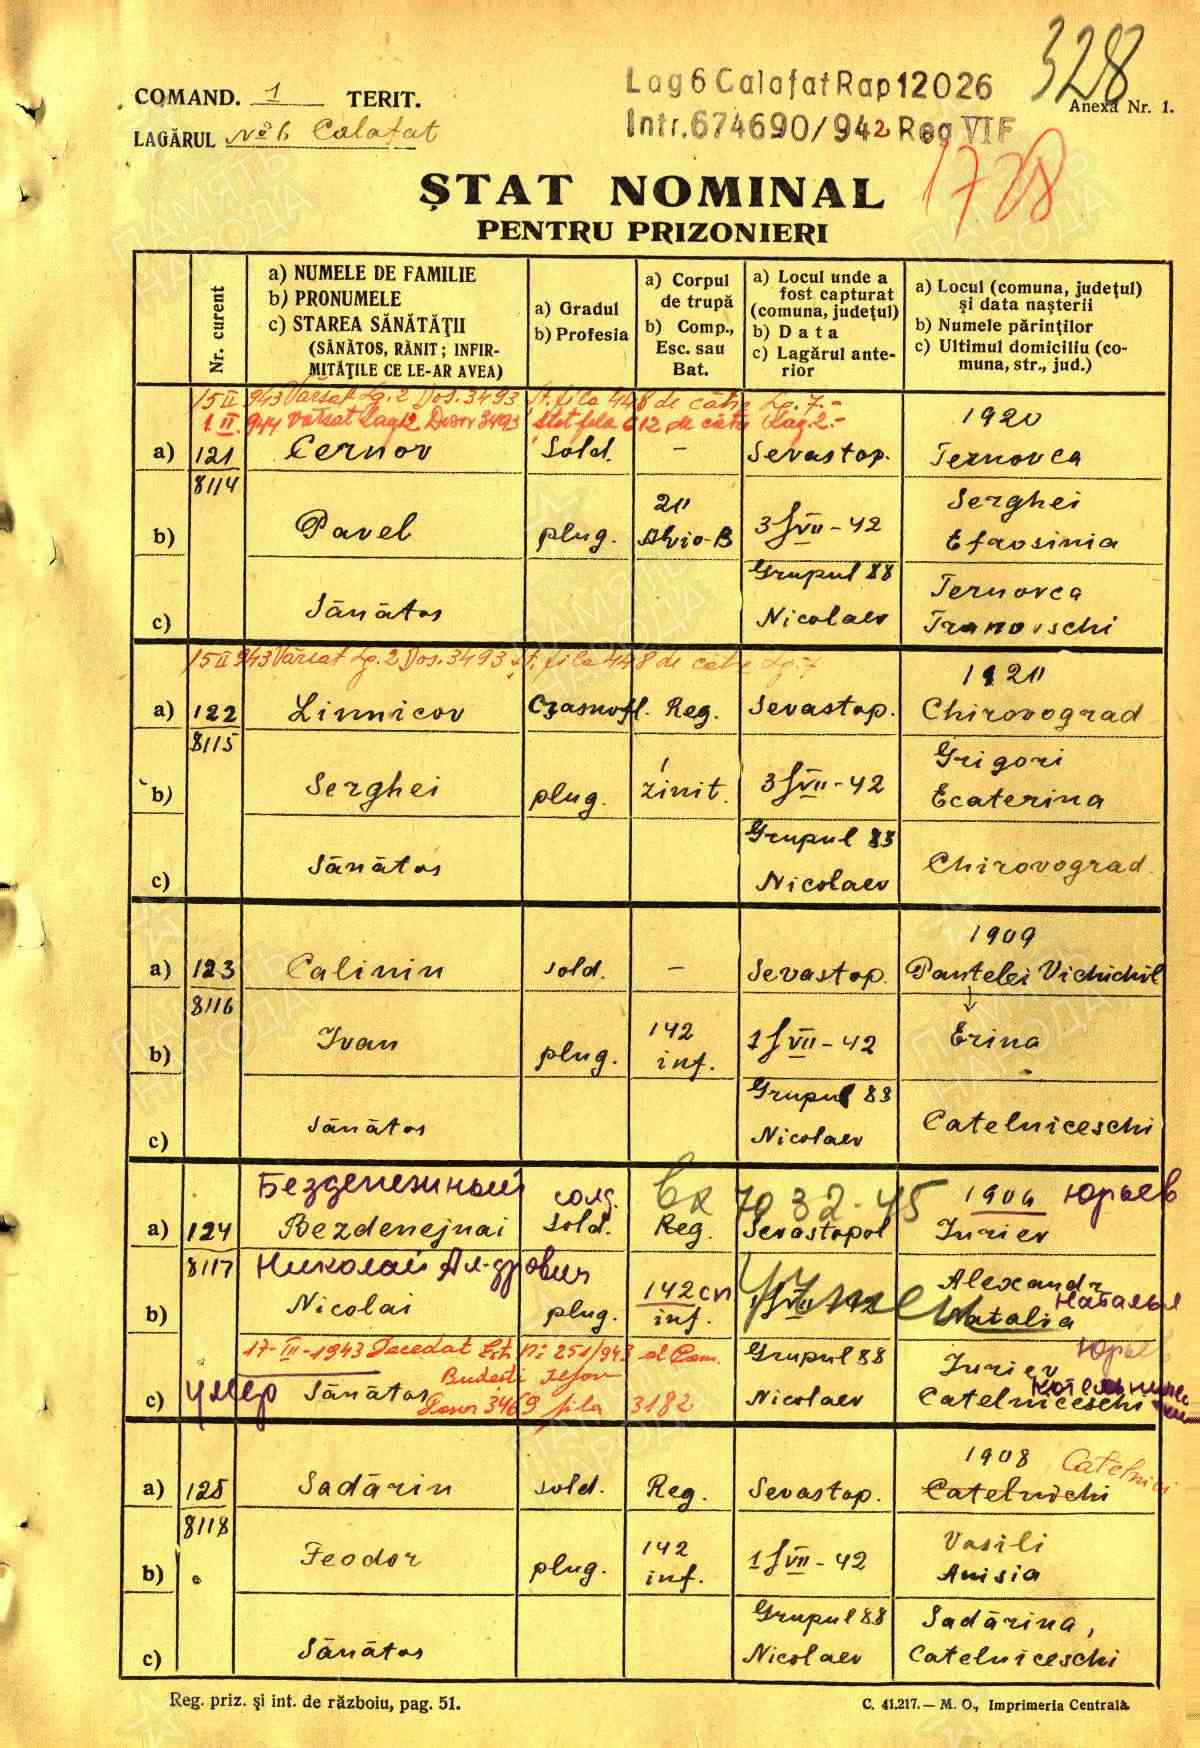 328
COMAND. 1 TERIT.
Lag 6 Calafat Rap 12026
Anexa Nr. 1.
LAGĂRUL No 6 Calafat
Intr. 674690/942 Reg VI F
1728
ȘTAT NOMINAL
PENTRU PRIZONIERI
Nr. curent
a) NUMELE DE FAMILIE
b) PRONUMELE
c) STAREA SĂNĂTĂȚII
(SĂNĂTOS, RĂNIT; INFIR-
MITĂȚILE CE LE-AR AVEA)
a) Gradul
b) Profesia
a) Corpul
de trupă
b) Comp.,
Esc. sau
Bat.
a) Locul unde a
fost capturat
(comuna, județul)
b) Data
c) Lagărul ante-
rior
a) Locul (comuna, județul)
și data nașterii
b) Numele părinților
c) Ultimul domiciliu (co-
muna, str., jud.)
15 II 943 Vărsat Lg. 2 Dos. 3493 st. fila 448 de către Lg. 7.-
1 II. 944 vărsat Lag 12 Dosar 3493 stat fila 612 de către Lag. 2.-
1920
a) 121 Cernov Sold. - Sevastop. Ternovca
8114
b) Pavel plug. 20 3 VII - 42 Serghei
Efrosinia
c) Sănătos Grupul 88
Nicolaev
Ternovca
15 II 943 Vărsat Lg. 2 Dos. 3493 st. fila 448 de către Lg. 7
1920
a) 122 Limnicov Reg. Sevastop. Chirovograd
8115
b) Serghei plug. 1 zinit. 3 VII - 42 Grigori
Ecaterina
c) Sănătos Grupul 83
Nicolaev
Chirovograd
1909
a) 123 Calinin sold. - Sevastop. Pantelei
8116
b) Ivan plug. 142
inf. 1 VII - 42 Erina
c) Sănătos Grupul 83
Nicolaev
Catelniceschi
Безденежный солд. вх 7032-45 1904 Юрьев
a) 124 Bezdenejnai Sold. Reg. Sevastopol Iuriev
8117 Николай Ал-дрович
b) Nicolai plug. 142 сп
inf. VII 42 умер
Alexandr
Natalia Наталья
17-III-1943 Decedat 251/943 al Com.
Budesti Ilfov
c) умер Sănătos Dosar 3469 fila 3182 Grupul 88
Nicolaev
Iuriev Юрьев
Catelniceschi
1908 Catelnici
a) 125 Sadărin sold. Reg. Sevastop. Catelnichi
8118
b) Feodor plug. 142
inf. 1 VII - 42 Vasili
Anisia
c) Sănătos Grupul 88
Nicolaev
Sadărina,
Catelniceschi
Reg. priz. și int. de războiu, pag. 51.
C. 41.217.— M. O., Imprimeria Centrală.
ПАМЯТЬ НАРОДА